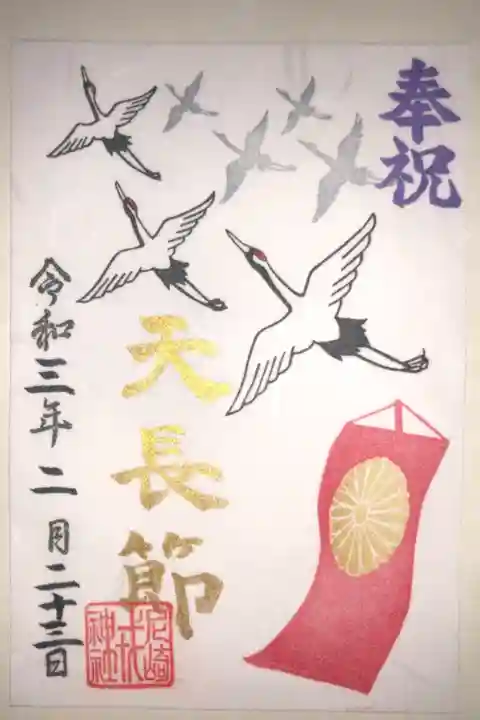 奉祝
天長節
令和三年二月二十三日
尼崎
戎
神社